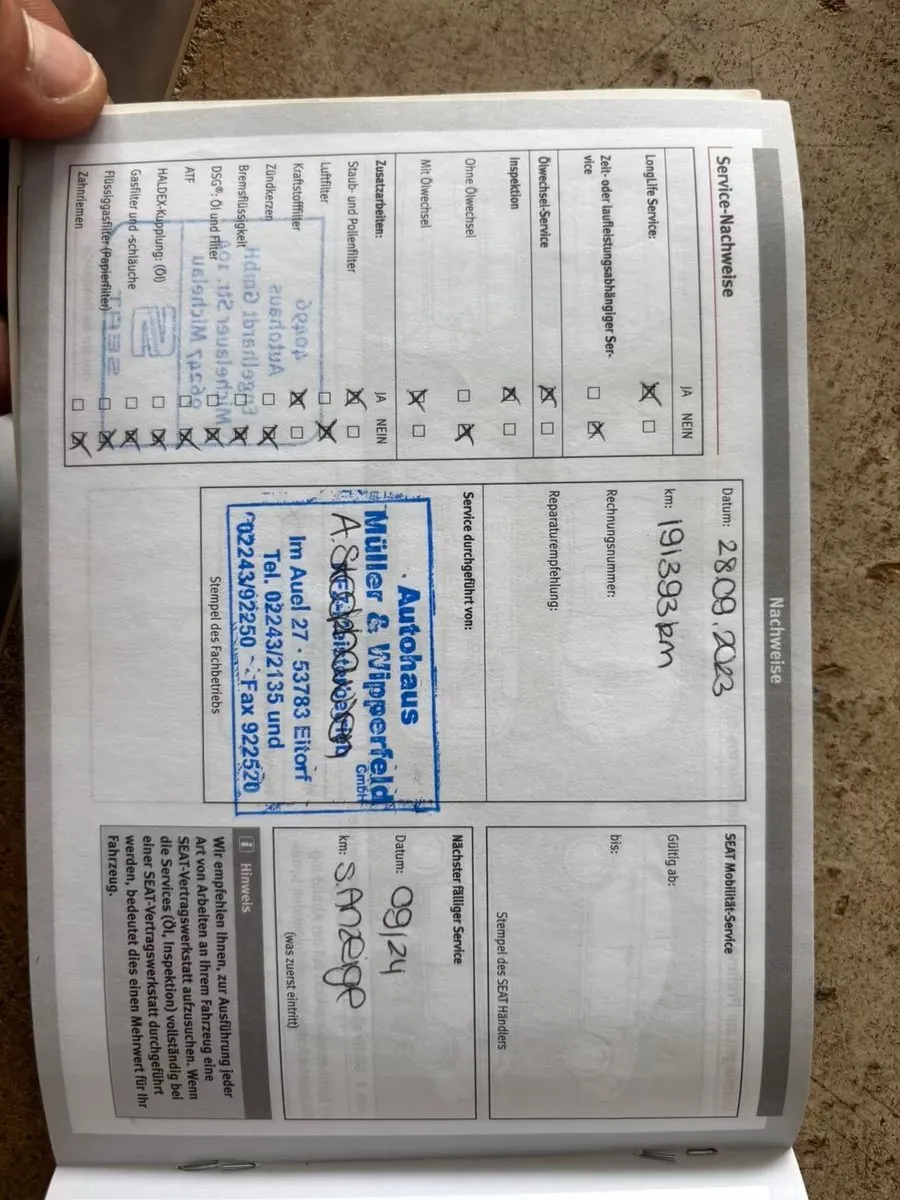 Nachweise
Service-Nachweise
JA NEIN
LongLife Service:
Zeit- oder laufleistungsabhängiger Ser-
vice
Ölwechsel-Service
Inspektion
Ohne Ölwechsel
Mit Ölwechsel
Zusatzarbeiten: JA NEIN
Staub- und Pollenfilter
Luftfilter
Kraftstofffilter
Zündkerzen
Bremsflüssigkeit
DSG®: Öl und Filter
ATF
HALDEX-Kupplung: (Öl)
Gasfilter und -schläuche
Flüssiggasfilter (Papierfilter)
Zahnriemen
Datum: 28.09.2023
km: 191393 km
Rechnungsnummer:
Reparaturempfehlung:
Service durchgeführt von:
Autohaus
Müller & Wipperfeld
GmbH
Im Auel 27 · 53783 Eitorf
Tel. 02243/2135 und
02243/92250 · Fax 922520
Stempel des Fachbetriebs
SEAT Mobilität-Service
Gültig ab:
bis:
Stempel des SEAT Händlers
Nächster fälliger Service
Datum: 09/24
km: S.Anzeige
(was zuerst eintritt)
i Hinweis
Wir empfehlen Ihnen, zur Ausführung jeder
Art von Arbeiten an Ihrem Fahrzeug eine
SEAT-Vertragswerkstatt aufzusuchen. Wenn
die Services (Öl, Inspektion) vollständig bei
einer SEAT-Vertragswerkstatt durchgeführt
werden, bedeutet dies einen Mehrwert für Ihr
Fahrzeug.